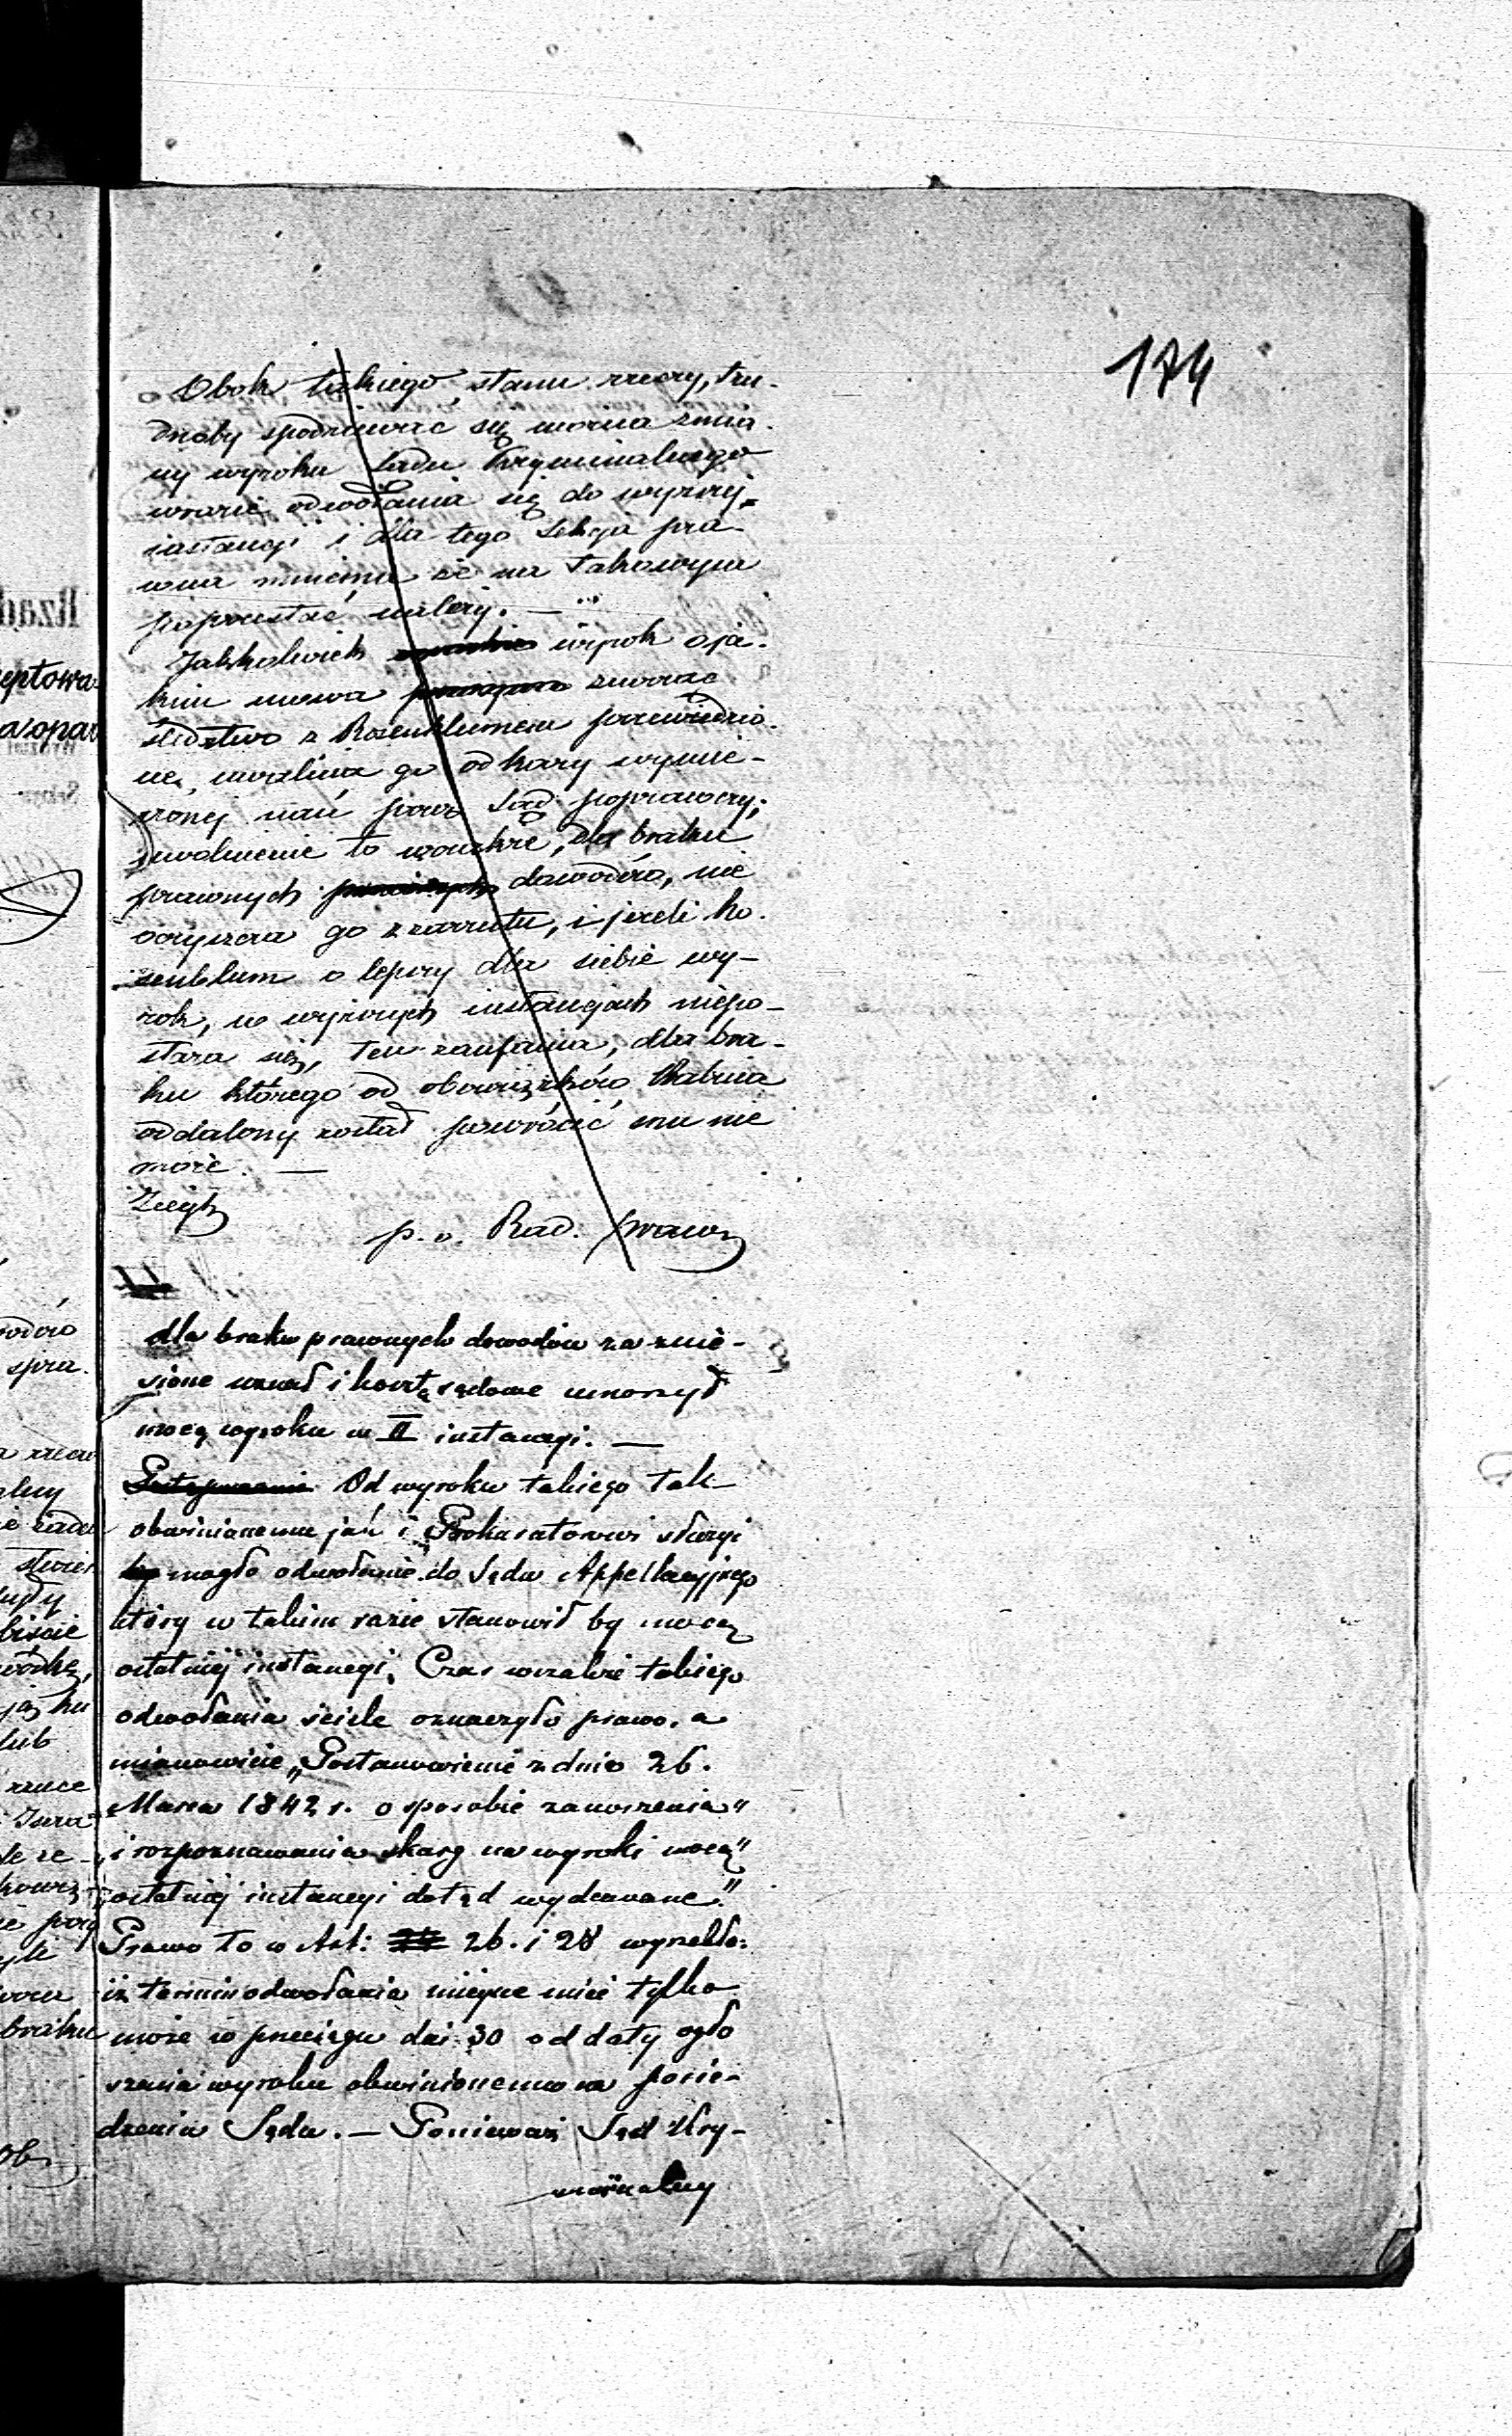 174
Obok takiego stanu rzeczy, tru-
dnoby spodziewać się można zmia-
ny wyroku Sądu Kryminalnego
w razie odwołania się do wyższej
instancji i dla tego Sekcja pra-
wna mniema że na takowym
poprzestać należy. —
Jakkolwiek wyrok o ja-
kim mowa zważając
śledztwo z Rosenblumem przewiedzio-
ne, uwalnia go od kary wymie-
rzonej nań przez Sąd poprawczy;
uwolnienie to wszakże, dla braku
prawnych dowodów, nie
oczyszcza go z zarzutu, i jeżeli Ro-
senblum o lepszy dla siebie wy-
rok, w wyższych instancjach niepo-
stara się, ten zaufania, dla bra-
ku którego od obowiązków Rabina
oddalony został powrócić mu nie
może. —
p. o. Rad. Prawn
dla braku prawnych dowodów za znie-
sione uznał i koszta sądowe umorzył
mocą wyroku w II instancyi. —
Od wyroku takiego tak
obwinionemu jak i Prokuratorowi służyć
by mogło odwołanie do Sądu Appellacyjnego
który w takim razie stanowił by mocą
ostatniej instancyi. Czas wszakże takiego
odwołania ściśle oznaczyło prawo, a
mianowicie „Postanowienie z dnia 26.
Marca 1842 r. o sposobie zanoszenia"
„i rozpoznawania skarg na wyroki mocą"
„ostatniej instancyi dotąd wydawane."
Prawo to w Art: 26. i 28 wyrzekło:
iż termin odwołania miejsce mieć tylko
może w przeciągu dni 30 od daty ogło
szenia wyroku obwinionemu na posie-
dzeniu Sądu. — Ponieważ Sąd Kry-
minalny